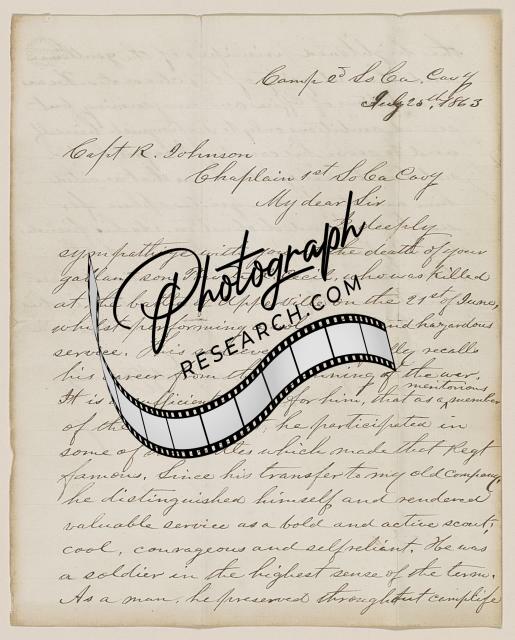 Camp 2d So Ca. Cavy
July 25th, 1863
Capt R. Johnson
Chaplain 1st So Ca Cavy
My dear Sir
I deeply
sympathize with you the death of your
gallant son who was killed
at the on the 21st of June,
whilst performing and hazardous
service. His recalls
his career from the of the war.
It is for him, that as a meritorious member
of the he participated in
some of which made that Regt
famous. Since his transfer to my old company
he distinguished himself and rendered
valuable service as a bold and active scout;
cool, courageous and self reliant. He was
a soldier in the highest sense of the term.
As a man, he preserved throughout camp life
Photograph
RESEARCH.COM